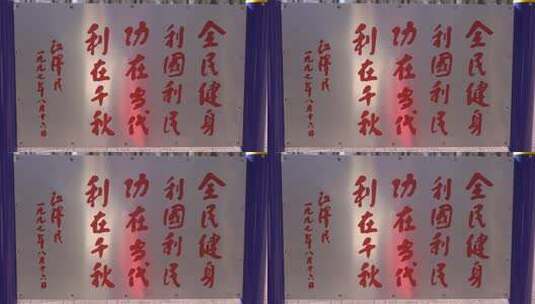 全民健身
利國利民
功在当代
利在千秋
江泽民
一九九七年八月十八日
全民健身
利國利民
功在当代
利在千秋
江泽民
一九九七年八月十八日
全民健身
利國利民
功在当代
利在千秋
江泽民
一九九七年八月十八日
全民健身
利國利民
功在当代
利在千秋
江泽民
一九九七年八月十八日